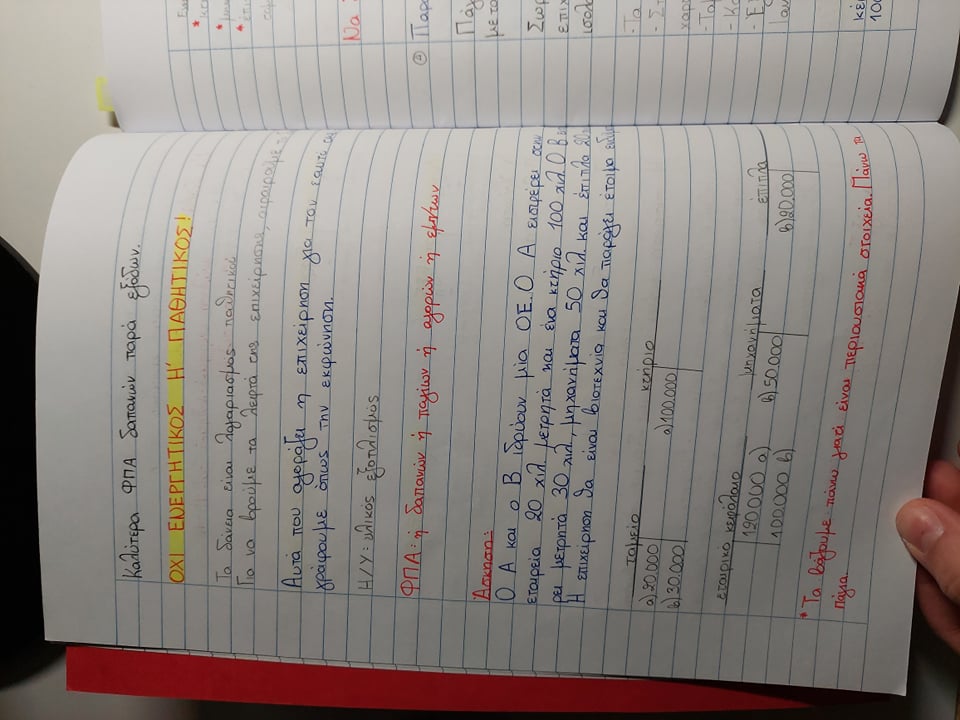 Καλύτερα ΦΠΑ δαπανών παρά εξόδων.
ΟΧΙ ΕΝΕΡΓΗΤΙΚΟΣ Η' ΠΑΘΗΤΙΚΟΣ!
Τα δάνεια είναι λογαριασμός παθητικού
Για να βρούμε τα λεφτά της επιχείρησης, αφαιρούμε
Αυτά που αγοράζει η επιχείρηση για τον εαυτό
γράφουμε όπως την εκφώνηση.
Η/Υ: υλικός εξοπλισμός
ΦΠΑ: ή δαπανών ή παγίων ή αγορών ή εμπ/των
Άσκηση:
Ο Α και ο Β ιδρύουν μία ΟΕ. Ο Α εισφέρει στην
εταιρεία 20 χιλ μετρητά και ένα κτήριο 100 χιλ. Ο Β
ρει μετρητά 30 χιλ., μηχανήματα 50 χιλ. και έπιπλα 20
Η επιχείρηση θα είναι βιοτεχνία και θα παράγει έτοιμα
ταμείο κτήριο
α) 20.000 α) 100.000
β) 30.000
εταιρικό κεφάλαιο μηχανήματα έπιπλα
120.000 α) β) 50.000 β) 20.000
100.000 β)
* Τα βάζουμε πάνω γιατί είναι περιουσιακά στοιχεία. Πάνω τα
πάγια.
Να
② Παρα
Πάγ
με το
Σωρ
επιχ
ισολ
- Τα
- Στ
χαρτ
- Ταμ
κέρ
100